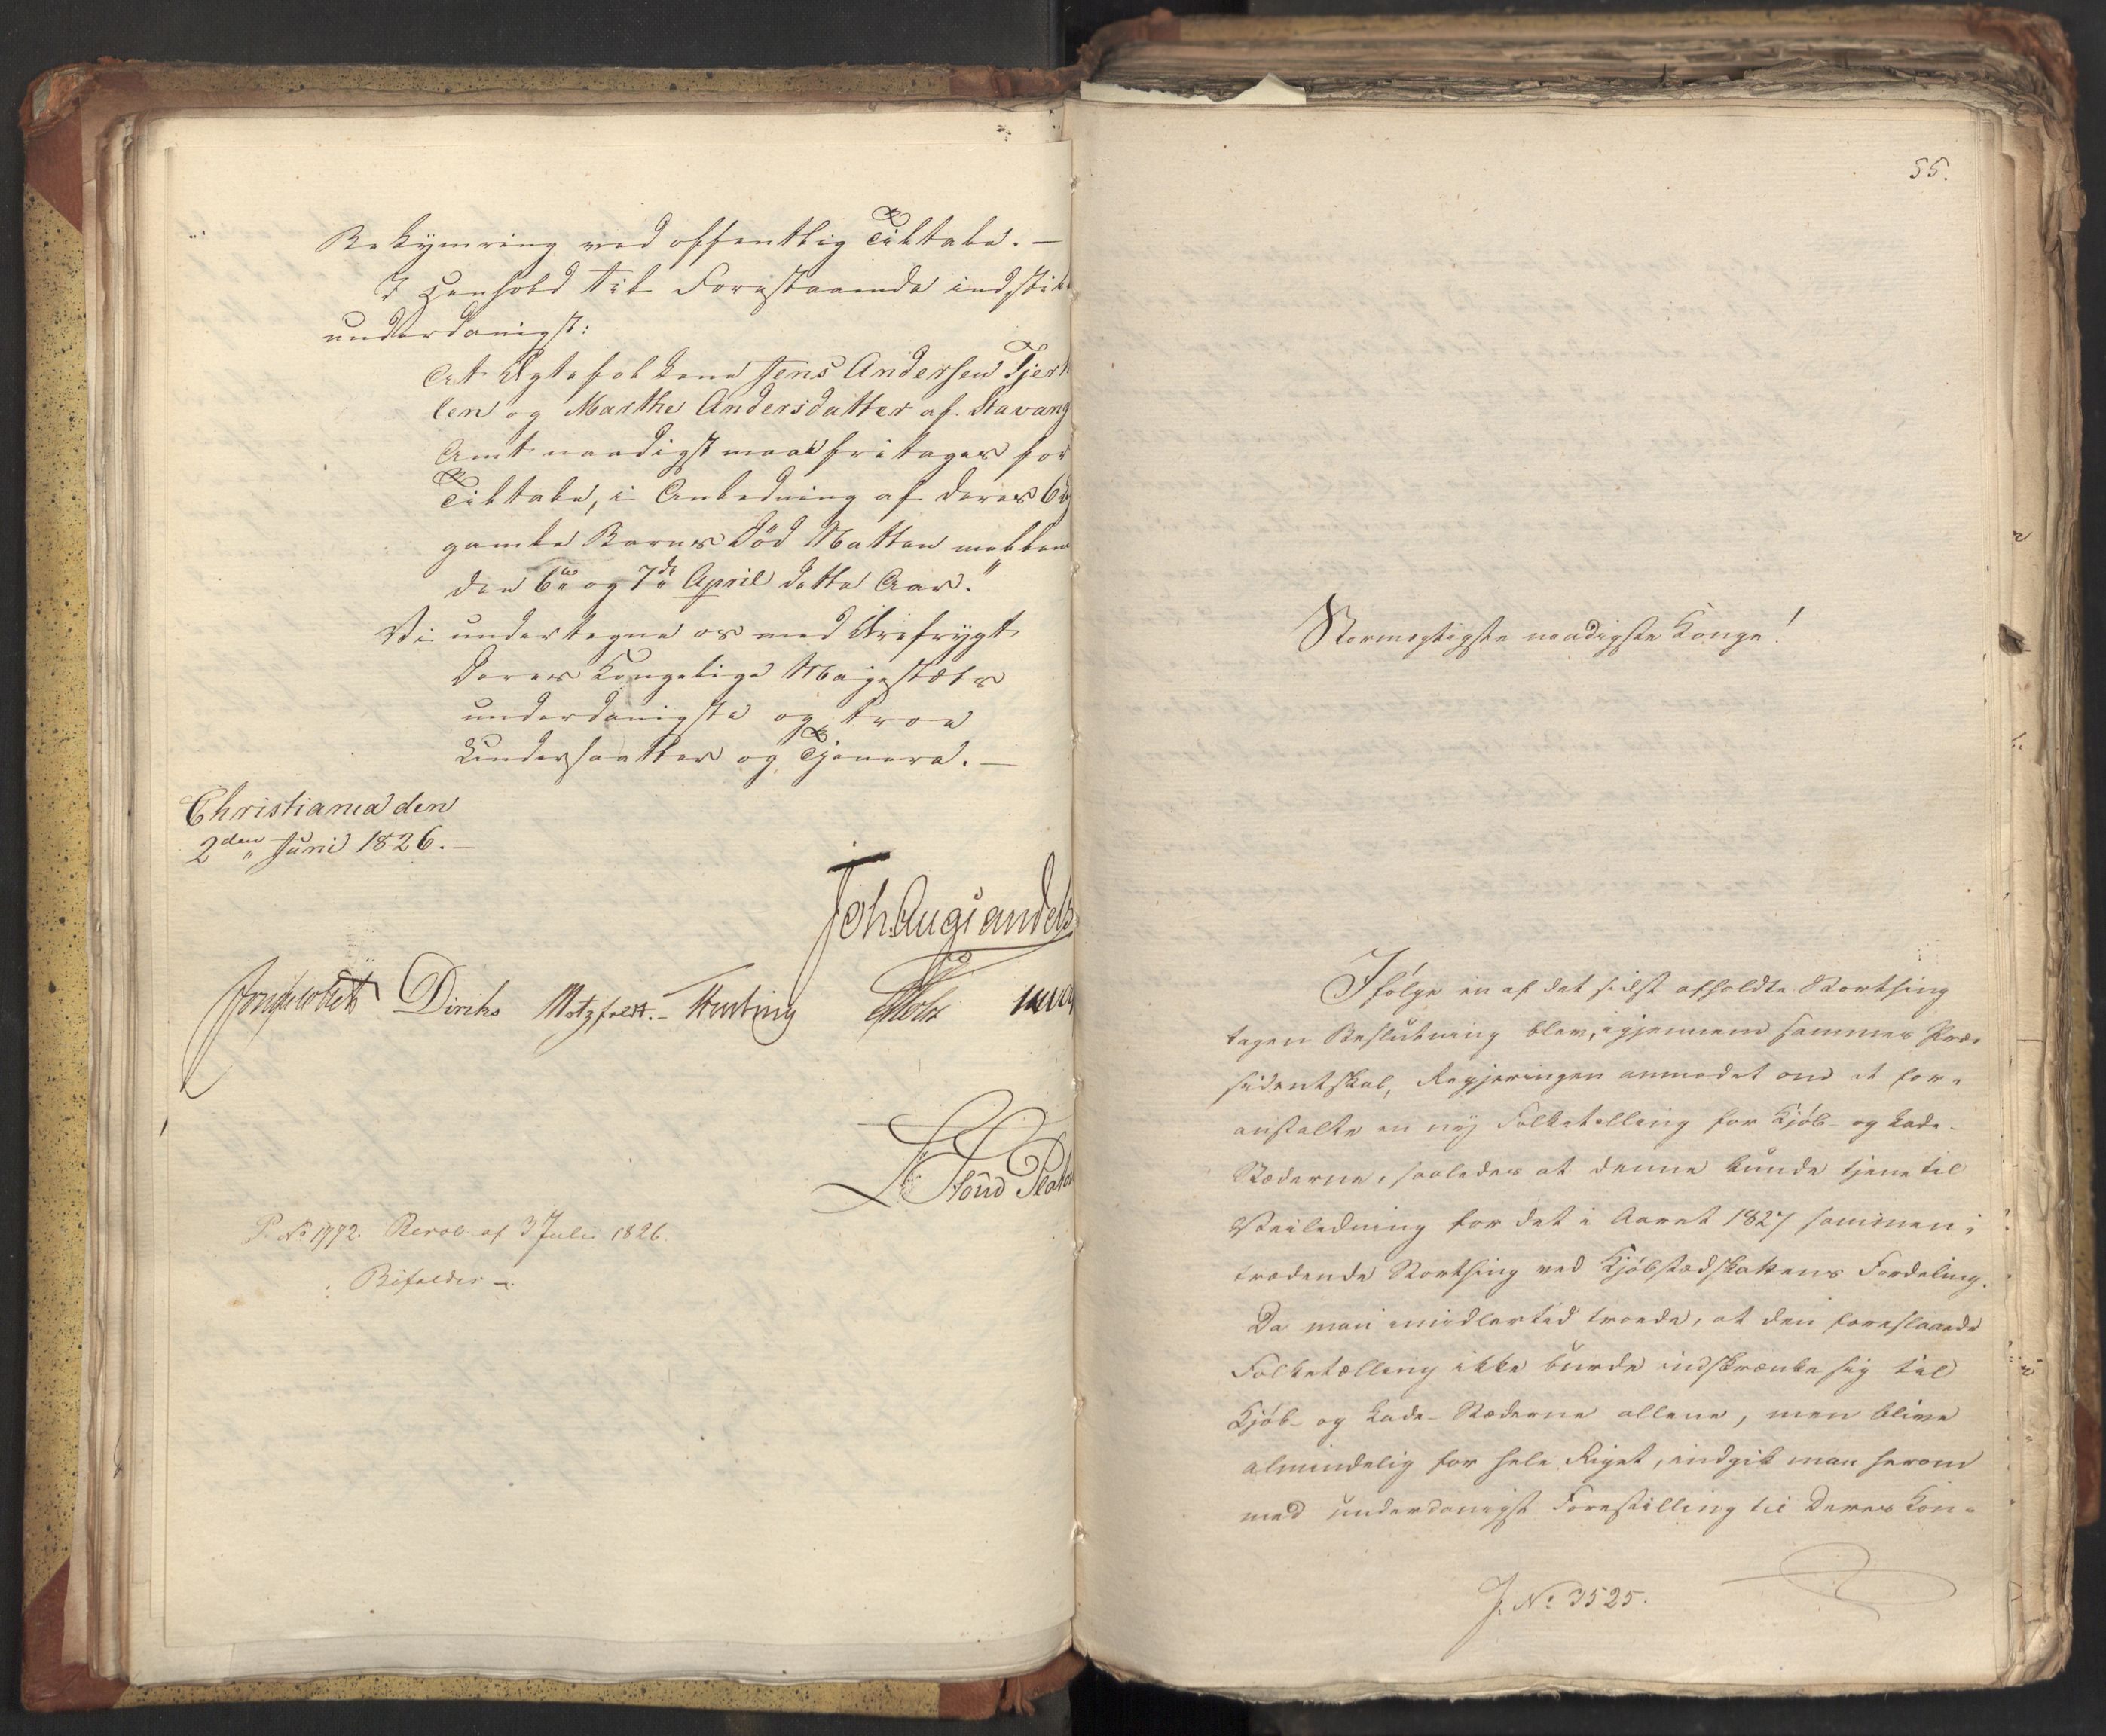 Bekymring ved offentlig Tiltale. —
I Henhold til Forestaaende indstil
underdanigst:
At Ægtefolkene Jens Andersen Tjert
len og Marthe Andersdatter af Stavang
Amt naadigst maae fritages for
Tiltale, i Anledning af deres 6
gamle Barns Död Natten mellem
den 6te og 7de April dette Aar."
Vi undertegne os med Ærefrygt
Deres Kongelige Majestæts
underdanigste og troe
Undersaatter og Tjenere. —
Christiania den
2den Juni 1826. —
Joh. Aug. Sandels
Diriks Motzfeldt. Holst
L Stoud Plato
P. No 1772. Resol. af 3 Juli 1826.
Bifaldes
55.
Stormægtigste naadigste Konge!
Ifølge en af det sidst afholdte Storthing
tagen Beslutning blev, igjennem sammes Præ-
sidentskab, Regjeringen anmodet om at for-
anstalte en ny Folketælling for Kjøb- og Lade-
Stæderne, saaledes at denne kunde tjene til
Veiledning for det i Aaret 1827 sammen-
trædende Storthing ved Kjøbstædskattens Fordeling.
Da man imidlertid troede, at den foreslaaede
Folketælling ikke burde indskrænke sig til
Kjøb- og Lade-Stæderne allene, men blive
almindelig for hele Riget, indgik man herom
med underdanigst Forestilling til Deres Kon-
J. No 3525.